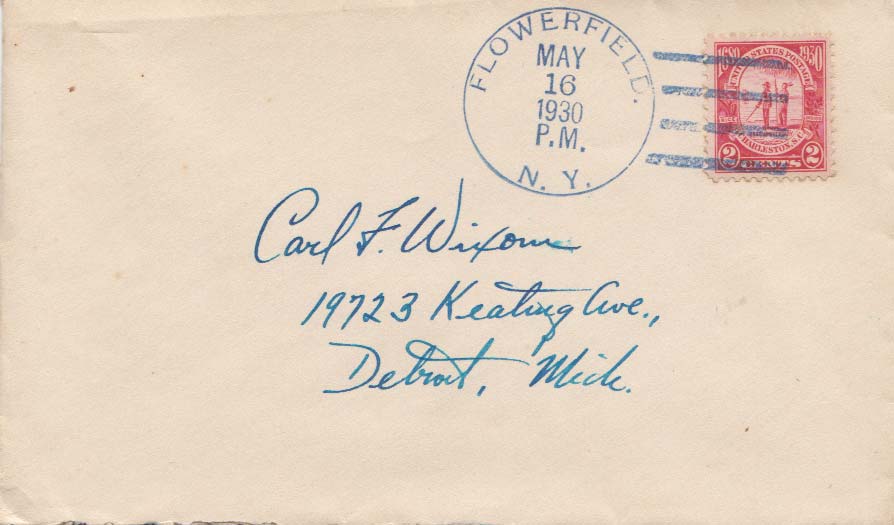 FLOWERFIELD.
MAY
16
1930
P.M.
N. Y.
1680 1930
UNITED STATES POSTAGE
CHARLESTON, S.C.
2 CENTS 2
Carl F. Wixom
19723 Keating Ave.,
Detroit, Mich.